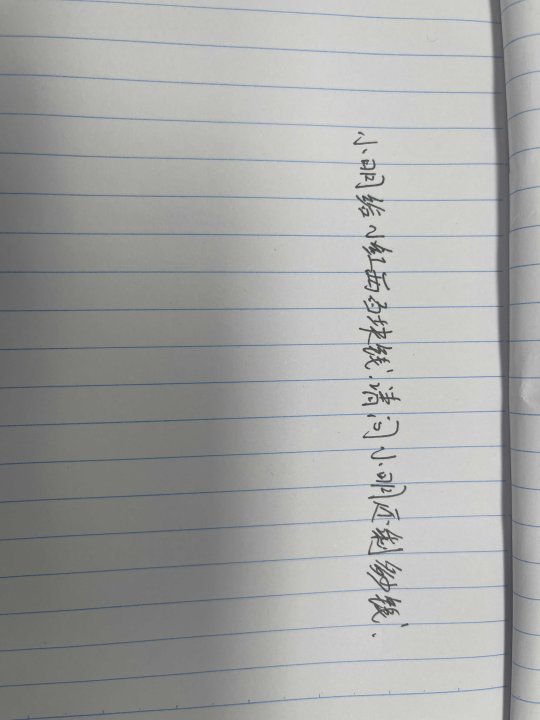 小明给小红两百块钱.请问小明还剩多少钱.